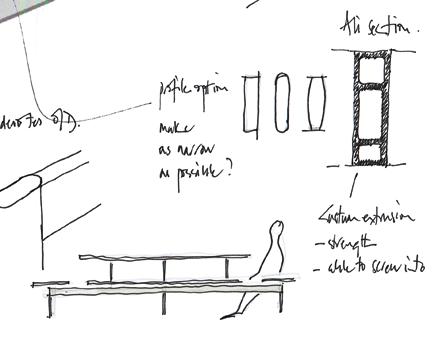 Ali section.
profile option
make
as narrow
as possible?
denotes O/D.
Custom extrusion
- strength
- able to screw into